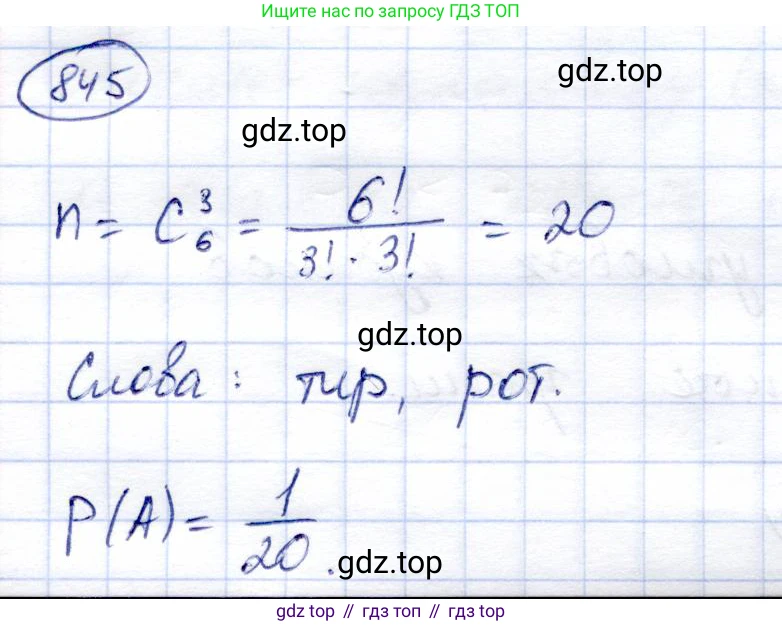 Ищите нас по запросу ГДЗ ТОП
845
gdz.top
gdz.top
n = C₆³ = 6! / (3! · 3!) = 20
gdz.top
Слова: тир, рот.
P(A) = 1/20.
gdz.top
gdz top // гдз топ // гдз top